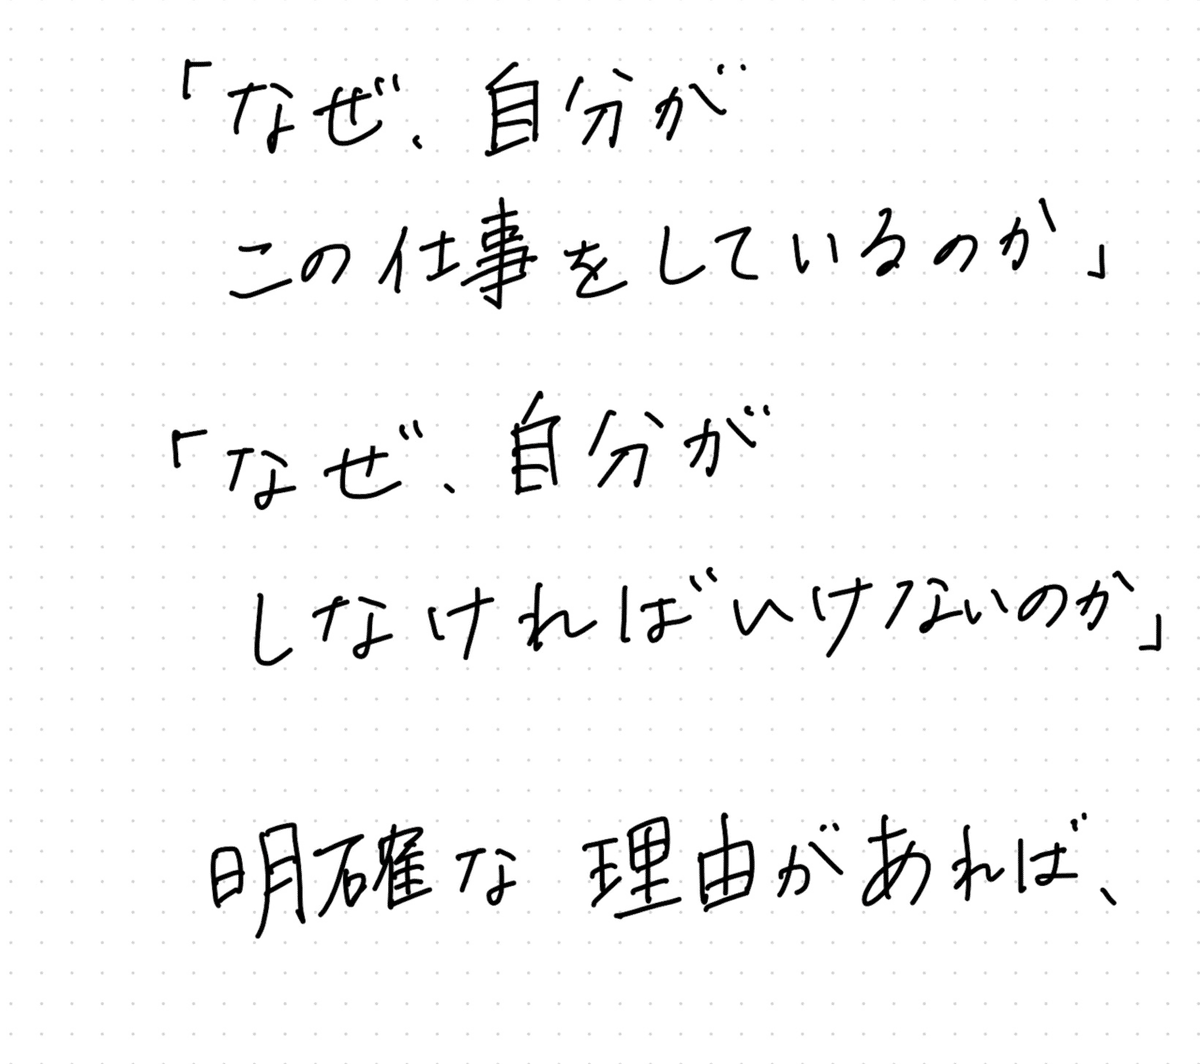 「なぜ、自分が
この仕事をしているのか」
「なぜ、自分が
しなければいけないのか」
明確な理由があれば、